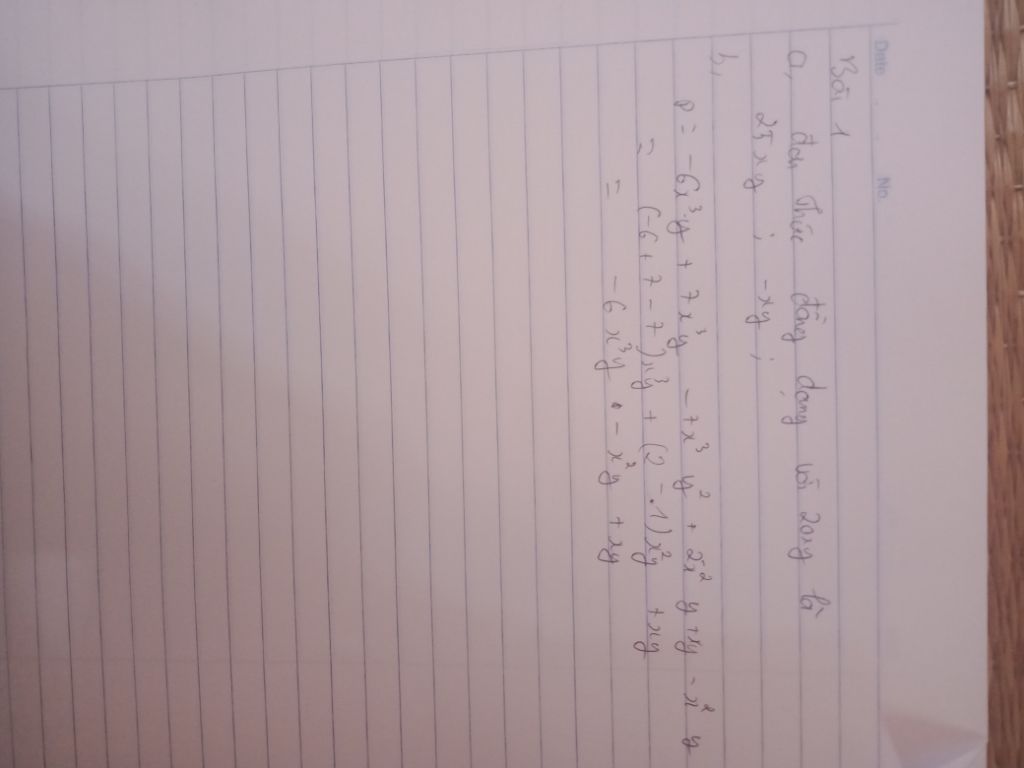 Date No.
Bài 1
a, đơn thức đồng dạng với 20xy là
25xy ; -xy ;
b,
P = - 6x³y + 7x³y - 7x³ y² + 2x² y + xy - x² y
= (-6 + 7 - 7)x³y + (2 - 1)x²y + xy
= - 6 x³y - x²y + xy